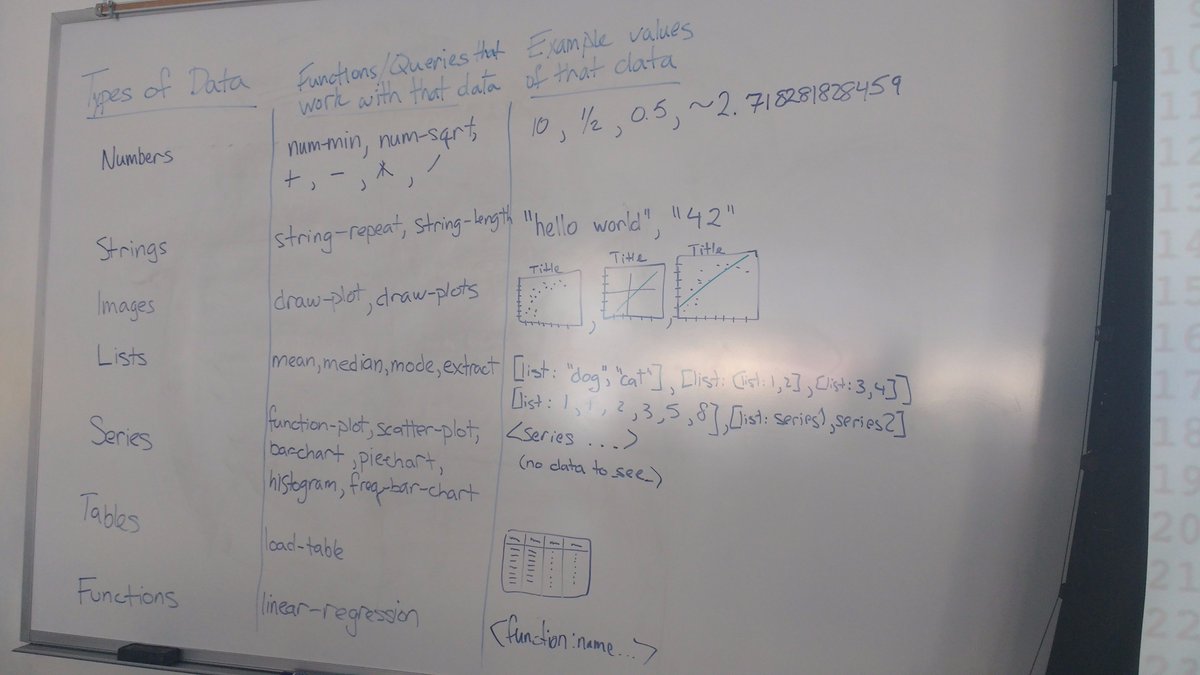 Types of Data
Functions/Queries that
work with that data
Example values
of that data
Numbers
num-min, num-sqrt,
+, -, *, /
10, 1/2, 0.5, ~2.718281828459
Strings
string-repeat, string-length
"hello world", "42"
Images
draw-plot, draw-plots
Title
Title
Title
Lists
mean, median, mode, extract
[list: "dog", "cat"], [list: [list: 1, 2], [list: 3, 4]]
[list: 1, 1, 2, 3, 5, 8], [list: series1, series2]
Series
function-plot, scatter-plot,
bar-chart, pie-chart,
histogram, freq-bar-chart
<series ...>
(no data to see)
Tables
load-table
Functions
linear-regression
<function:name...>
10
11
12
12
13
14
15
16
17
18
19
20
21
22
23